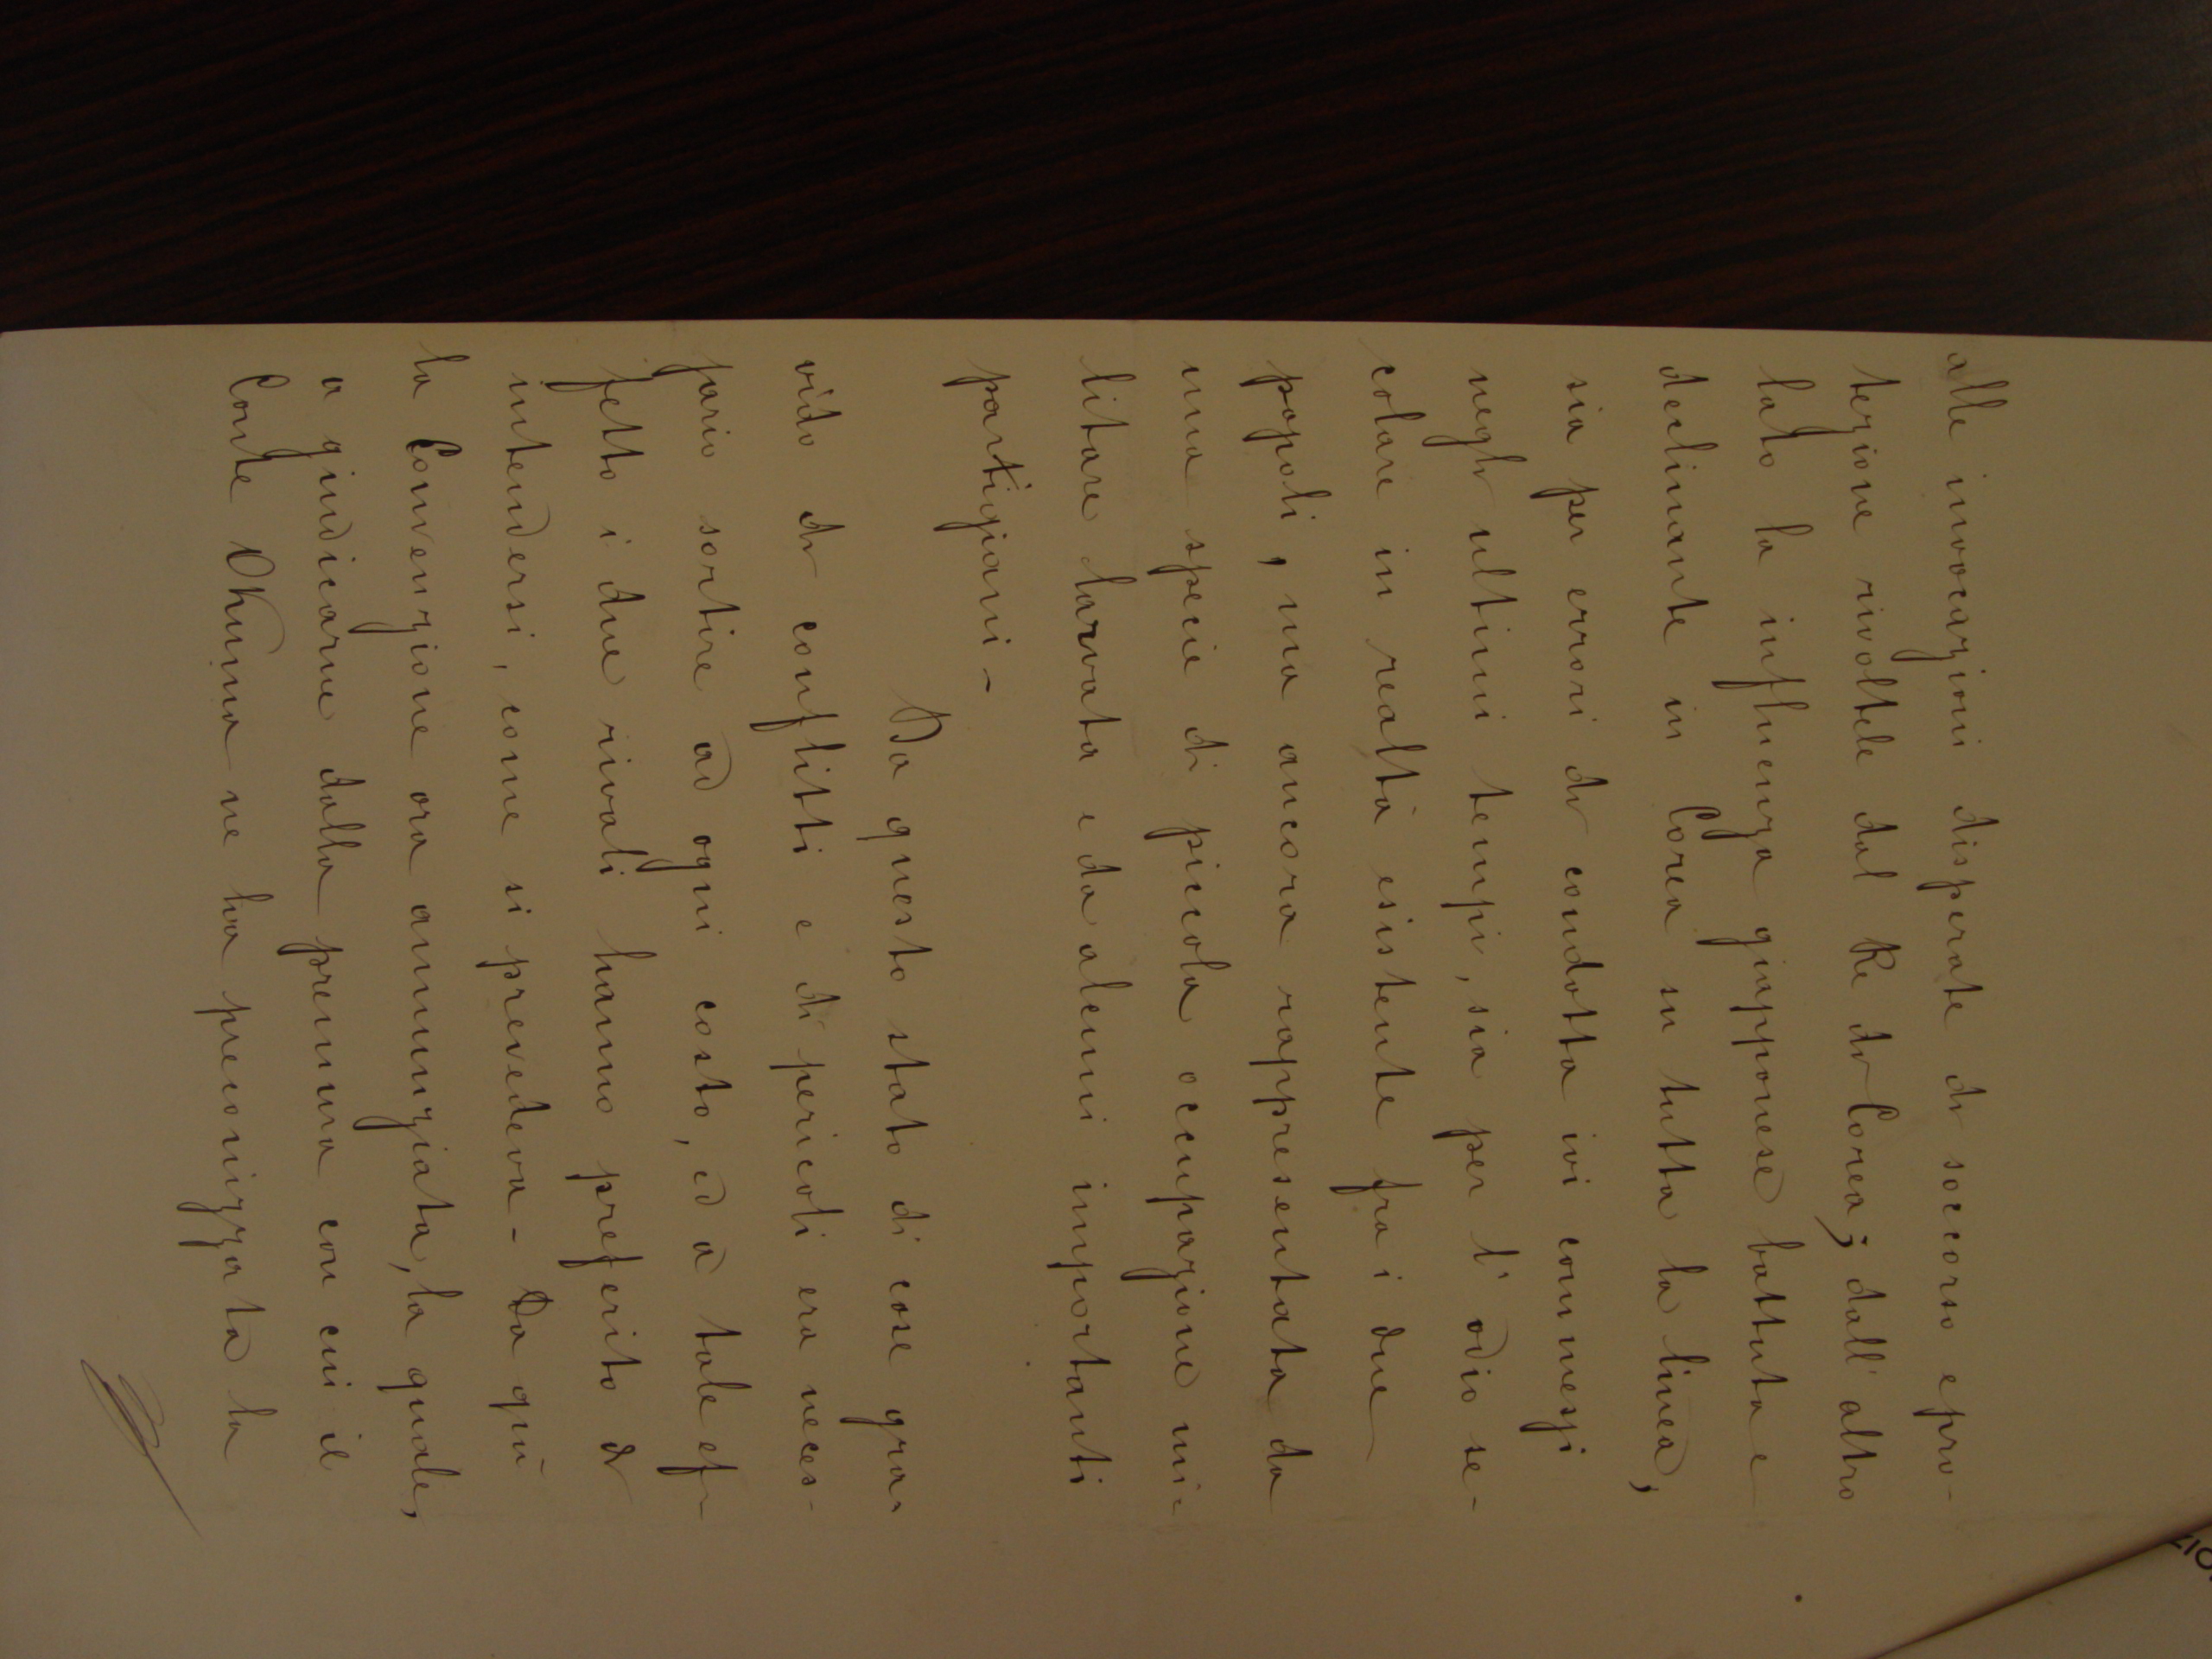 alle invocazioni disperate di soccorso e pro-
tezione rivoltele dal Re di Corea; dall'altro
lato la influenza giapponese battuta e
declinante in Corea su tutta la linea,
sia per errori di condotta ivi commessi
negli ultimi tempi, sia per l'odio se-
colare in realtà esistente fra i due
popoli, ma ancora rappresentata da
una specie di piccola occupazione mi-
litare larvata e da alcuni importanti
partigiani -
Da questo stato di cose gra-
vido di conflitti e di pericoli era neces-
sario sortire ad ogni costo, ed a tale ef-
fetto i due rivali hanno preferito di
intendersi, come si prevedeva - Da qui
la Convenzione ora annunziata, la quale,
a giudicarne dalla premura con cui il
Conte Okuma ne ha preconizzata la